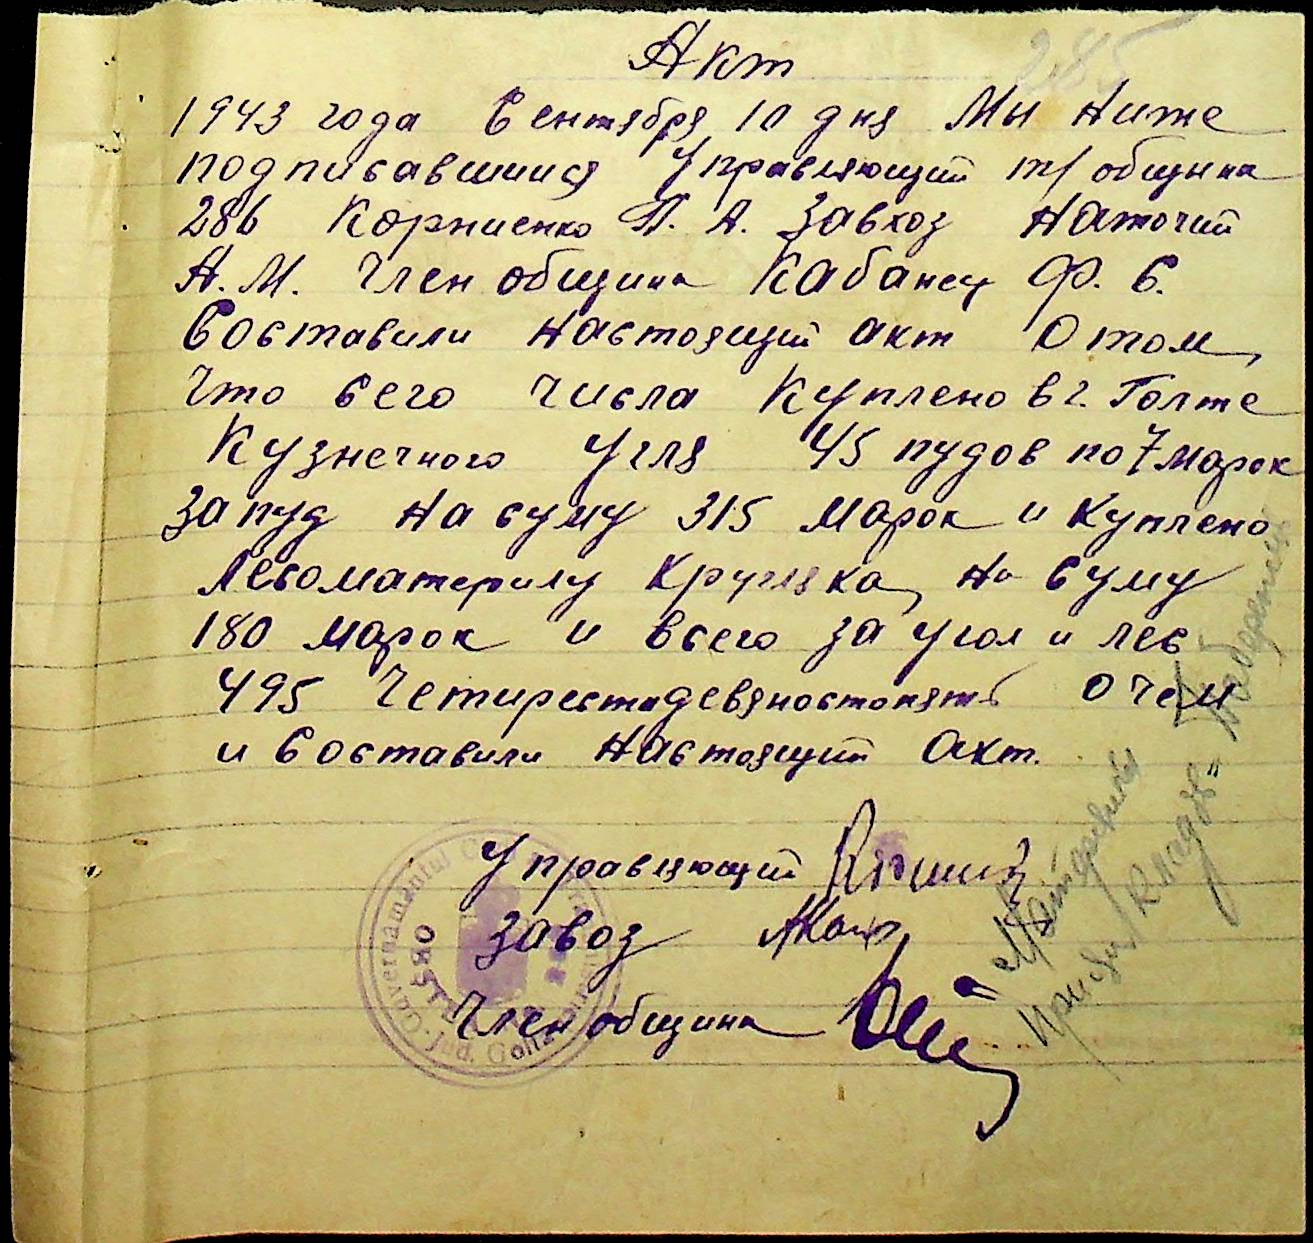 285
Акт
1943 года Сентября 10 дня Мы Ниже
подписавшиися Управляющий т/ общына
286 Корниенко П. А. Завхоз Наточий
А. М. Член община Кабанец Ф. С.
Составили настоящий акт О том,
Что сего Числа Куплено в г. Голте
Кузнечного Угля 45 пудов по 7 марок
За пуд на суму 315 Марок и Куплено
Лесоматерилу Кругляка, на суму
180 марок и всего за угол и лес
495 Четирестадевяностопять О чем
и Составили настоящий Акт.
Управляющий
Завоз
Член община
Guvernământul
Jud. Golta